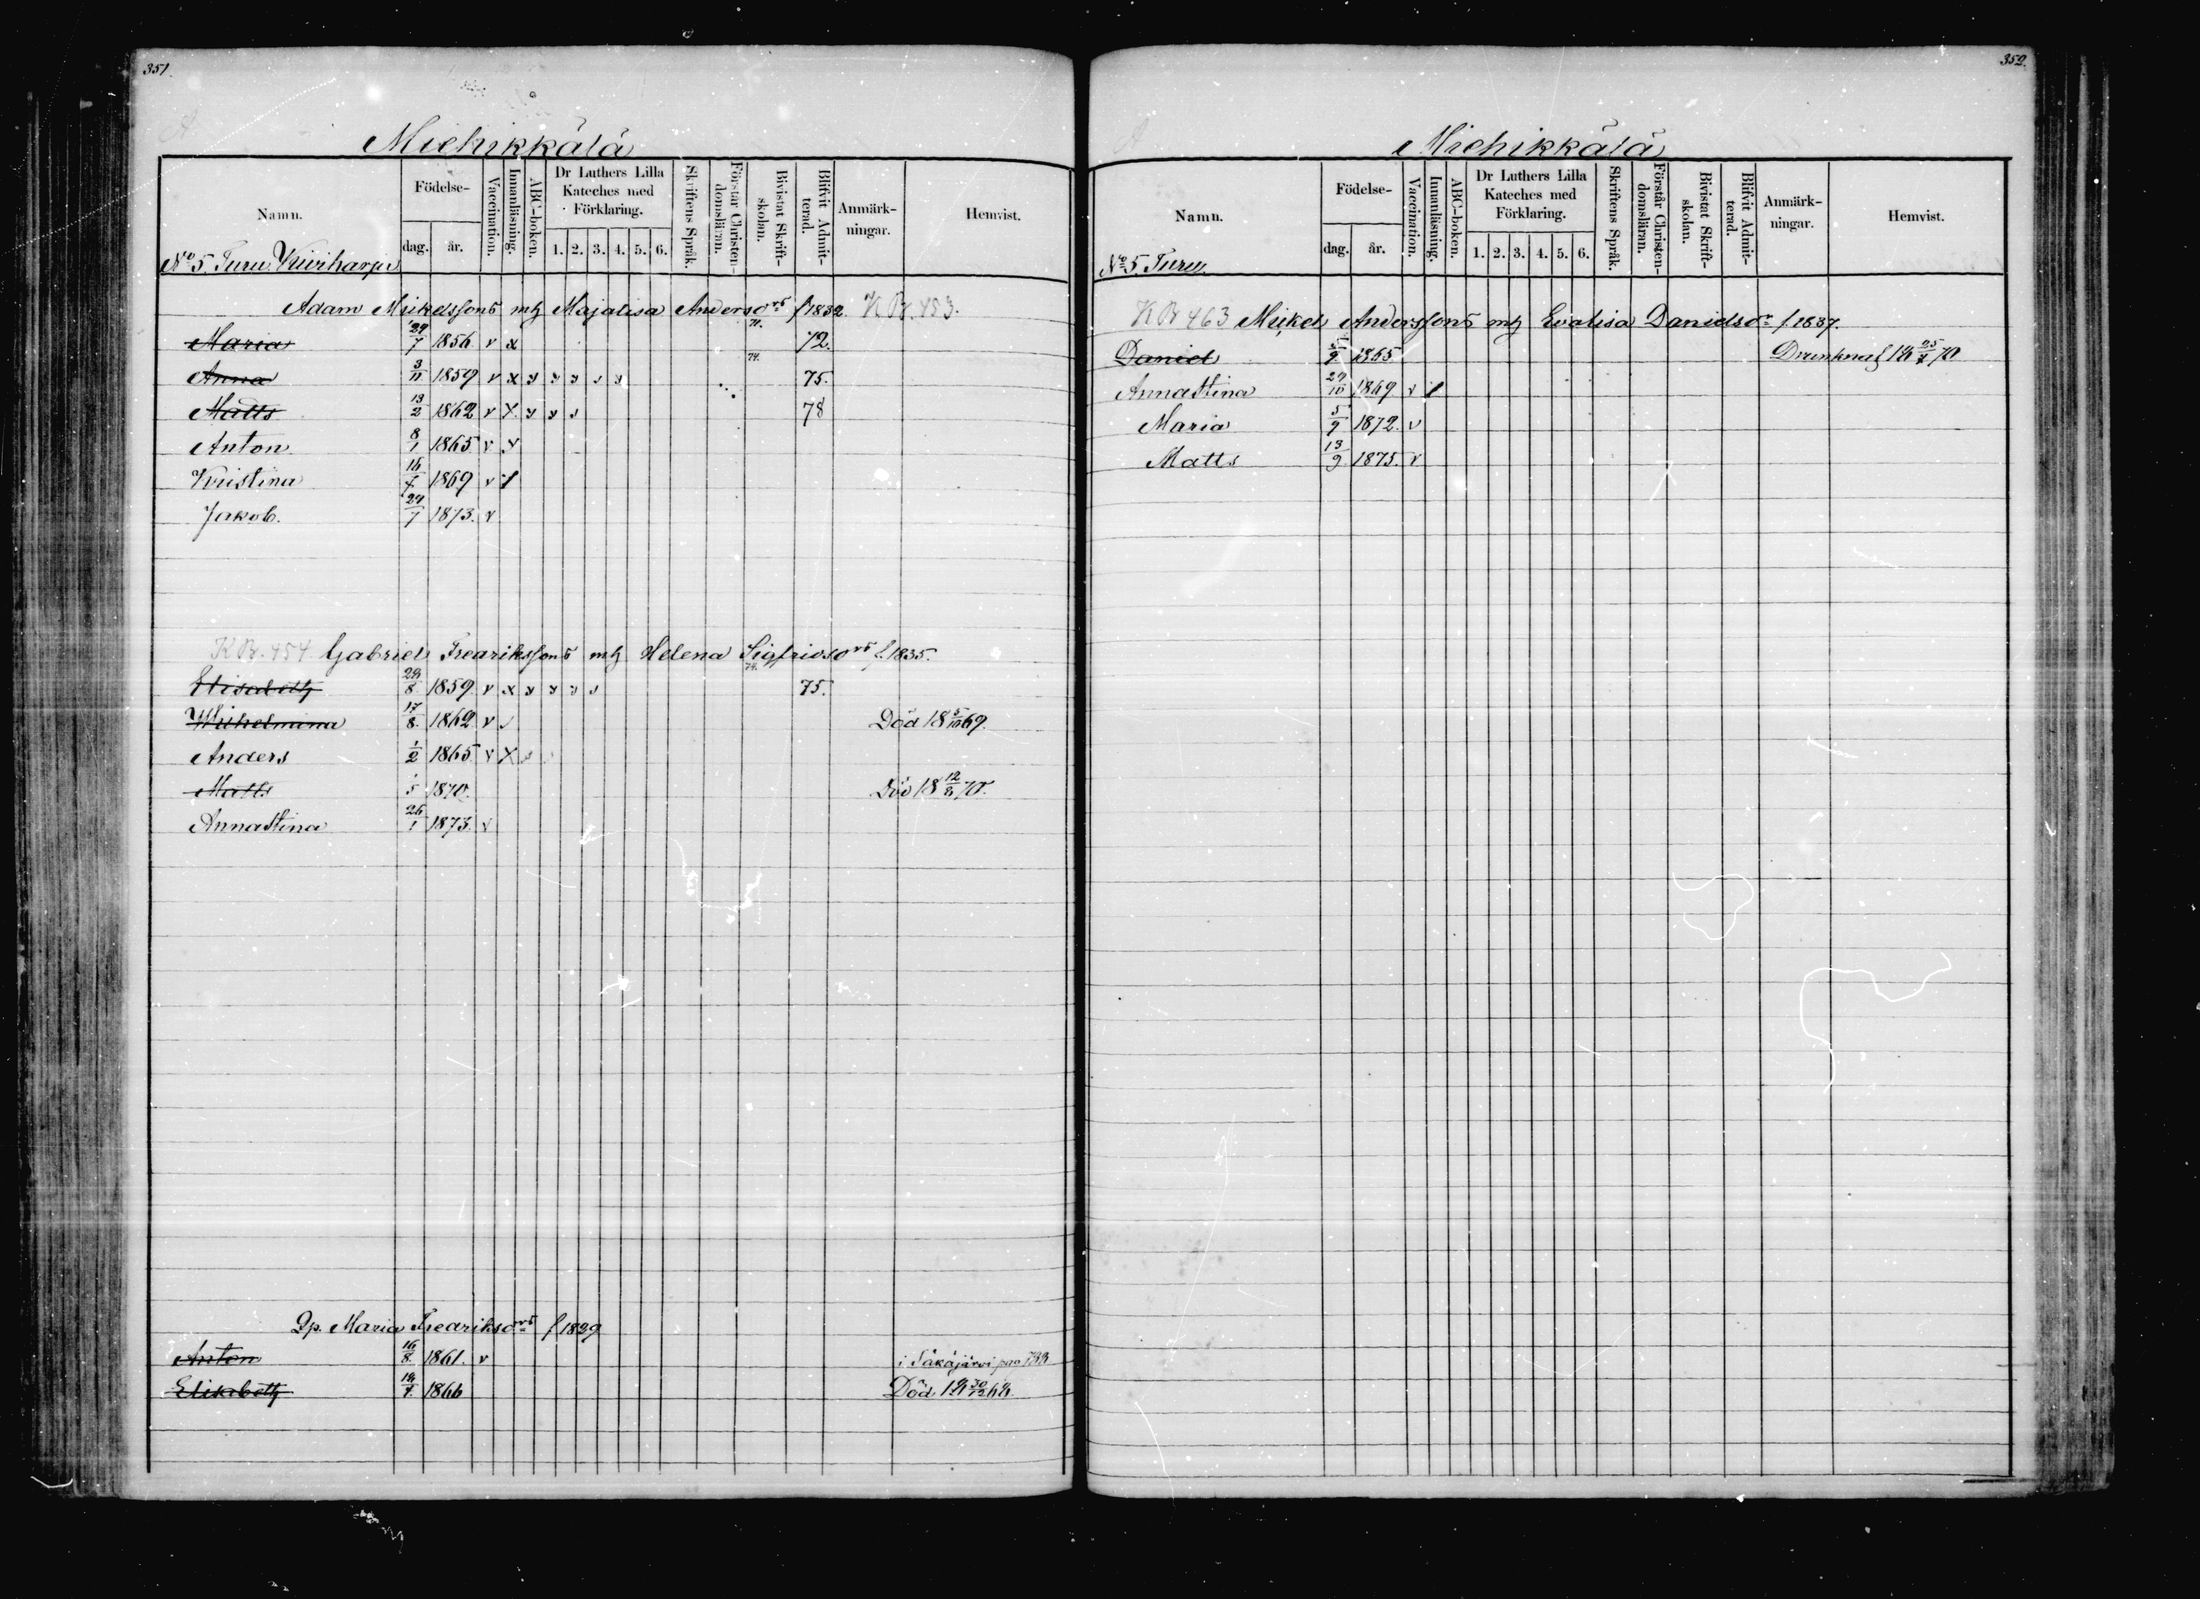 351.
Miehikkälä
Namn.
Födelse-
dag. år.
Vaccination.
Innanläsning.
ABC-boken.
Dr Luthers Lilla Kateches med Förklaring.
1. 2. 3. 4. 5. 6.
Skriftens Språk.
Förstår Christendomsläran.
Bivistat Skriftskolan.
Blifvit Admitterad.
Anmärkningar.
Hemvist.
No 5 Turu Kiviharju
Adam Mickelsson5 mh Majalisa Andersdrs f 1832 KB. 453.
Maria 29/7 1856 v x 71. 72.
Anna 3/11 1859 v x y y y y 74. 75.
Matts 13/2 1862 v x y y 78
Anton 8/1 1865 v
Kristina 1869 v
Jakob. 29/7 1873. v
KB. 454 Gabriel Fredriksson5 mh Helena Sigfridsdrs f. 1835.
Elisabeth 29/8 1859. v x y y y 74. 75.
Wilhelmina 17/8. 1862. v Död 18 5/10 69.
Anders 1/2 1865 v x
Matts 1/5 1870. Död 18 12/8 70.
Annastina 26/1 1873. v
Maria Fredriksdrs f 1829
Anton 16/8. 1861. v i Säkäjärvi
Elisabeth 1866 Död 18 30/12 68.
352.
Miehikkälä
Namn.
Födelse-
dag. år.
Vaccination.
Innanläsning.
ABC-boken.
Dr Luthers Lilla Kateches med Förklaring.
1. 2. 3. 4. 5. 6.
Skriftens Språk.
Förstår Christendomsläran.
Bivistat Skriftskolan.
Blifvit Admitterad.
Anmärkningar.
Hemvist.
No 5 Turu.
KB 463 Mickel Andersson5 mh Evalisa Danielsdr f. 1837.
Daniel 1865 Drunknat 18 25/7 70
Annastina 29/10 1869 v
Maria 5/9 1872. v
Matts 13/9 1875. v